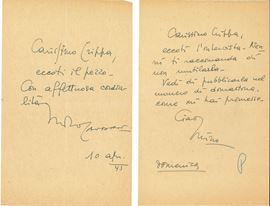 Carissimo Crippa,
eccoti il pezzo.
Con affettuosa cordia
lità
Nino
10 apr.
Carissimo Crippa,
eccoti l'intervista.
ti raccomando di
non mutilarla.
Vedi di pubblicarla nel
numero di domattina,
come mi hai promesso.
Ciao
Nino
domenica